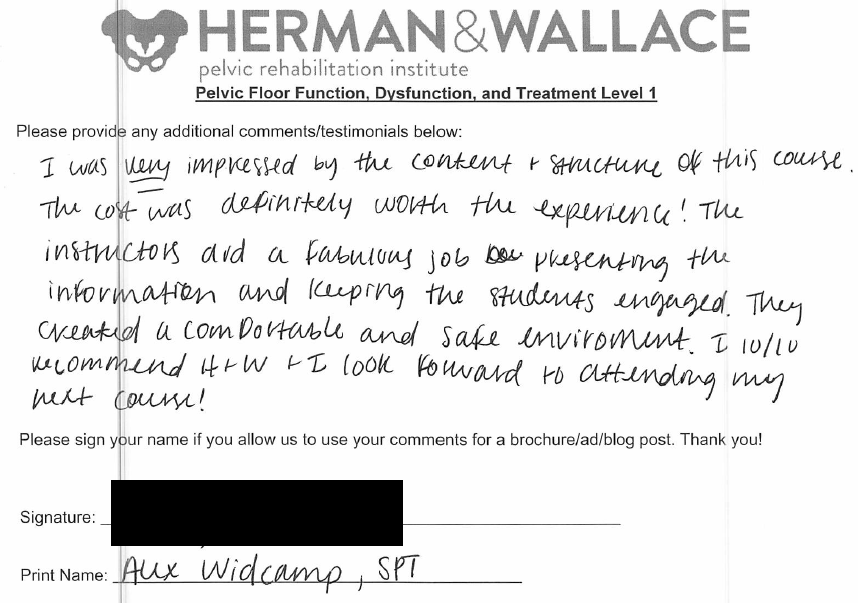 HERMAN&WALLACE
pelvic rehabilitation institute
Pelvic Floor Function, Dysfunction, and Treatment Level 1
Please provide any additional comments/testimonials below:
I was very impressed by the content + structure of this course.
The cost was definitely worth the experience! The
instructors did a fabulous job presenting the
information and keeping the students engaged. They
created a comfortable and safe enviroment. I 10/10
recommend H+W + I look forward to attending my
next course!
Please sign your name if you allow us to use your comments for a brochure/ad/blog post. Thank you!
Signature:
Print Name: Alix Widcamp, SPT